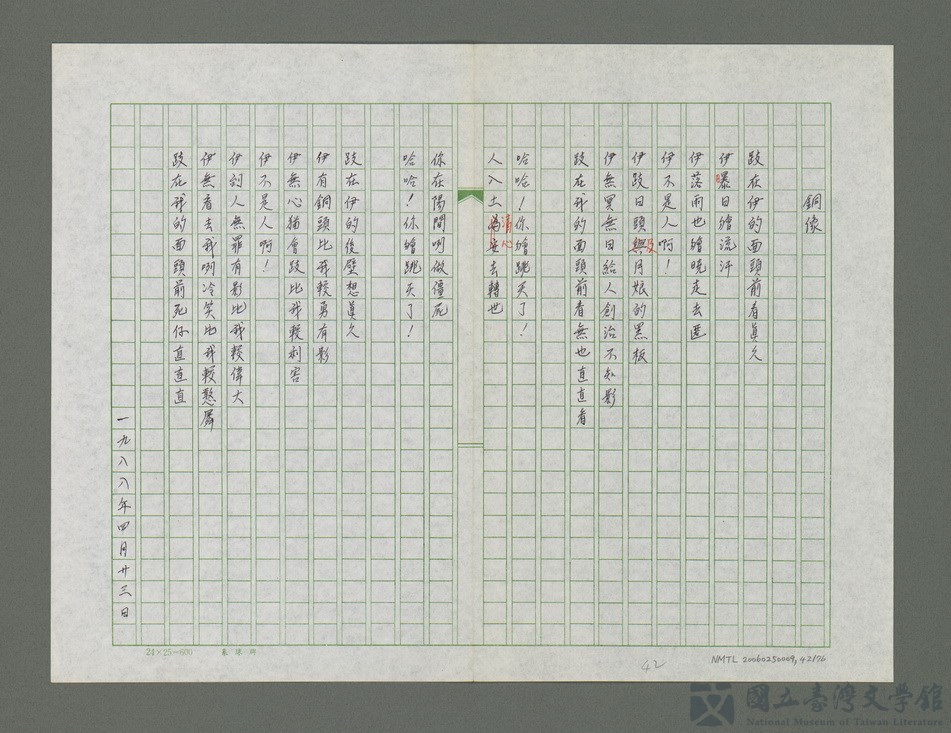 銅像
跂在伊的面頭前看真久
伊曝日繪流汗
伊落雨也繪曉走去匿
伊不是人啊！
伊跂日頭及月娘的黑板
伊無冥無日給人創治不知影
跂在我的面頭前看無也直直看
哈哈！你繪跳天了！
人入土清心去轉世
你在陽間啊做僵死
哈哈！你繪跳天了！
跂在伊的後壁想真久
伊有銅頭比我較勇有影
伊無心猶會跂比我較利害
伊不是人啊！
伊刣人無罪有影比我較偉大
伊無看去我啊冷笑比我較憨
跂在我的面頭前死仔直直直
一九八八年四月廿三日
24×25=600
42
NMTL 20060250009, 42/76
國立臺灣文學館
National Museum of Taiwan Literature